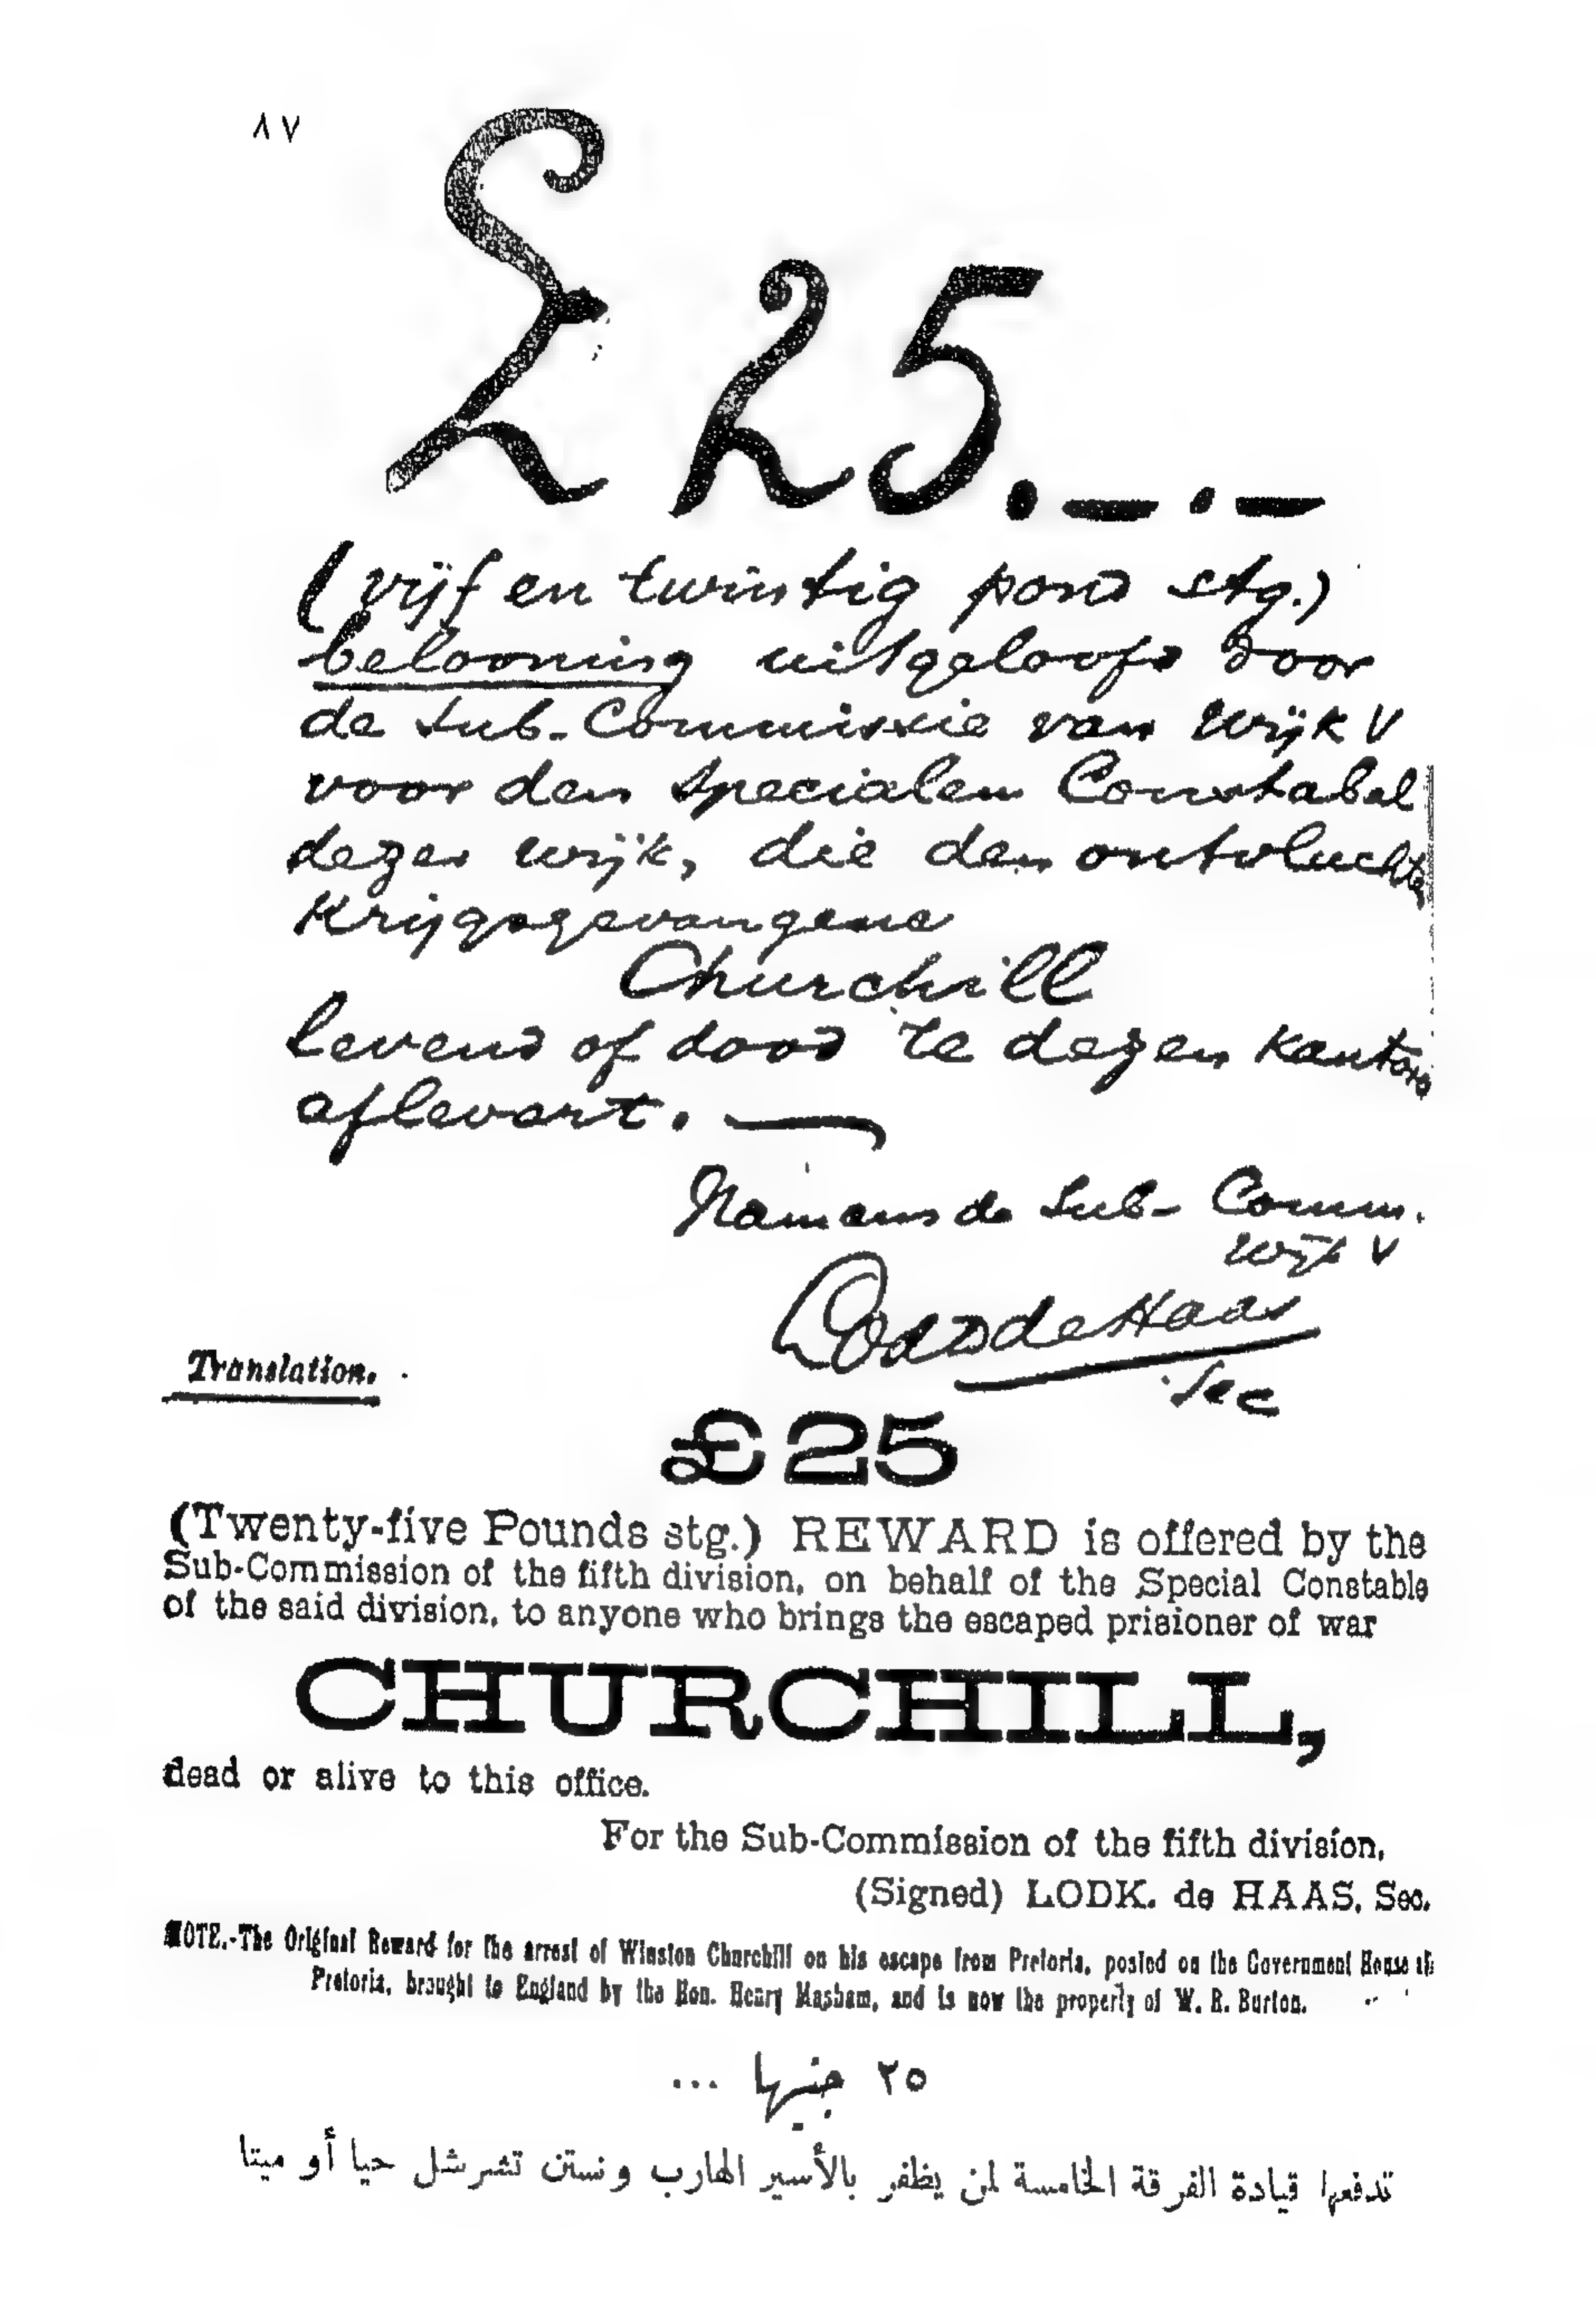 ٨٧
£ 25.—.—
(vijf en twintig pond stg.)
belooning uitgeloofd door
de Sub-Commissie van Wijk V
voor den specialen Constabel
dezer wijk, die den ontvluchte
Krijgsgevangene
Churchill
levend of dood te dezen kantore
aflevert.—
Namens de Sub-Comm.
Wijk V
de Haas
Sec
Translation.
£25
(Twenty-five Pounds stg.) REWARD is offered by the
Sub-Commission of the fifth division, on behalf of the Special Constable
of the said division, to anyone who brings the escaped prisioner of war
CHURCHILL,
dead or alive to this office.
For the Sub-Commission of the fifth division,
(Signed) LODK. de HAAS, Sec.
NOTE.-The Original Reward for the arrest of Winston Churchill on his escape from Pretoria, posted on the Government House at
Pretoria, brought to England by the Hon. Henry Masham, and is now the property of W. R. Burton.
٢٥ جنيها ...
تدفعها قيادة الفرقة الخامسة لمن يظفر بالأسير الهارب ونستن تشرشل حيا أو ميتا